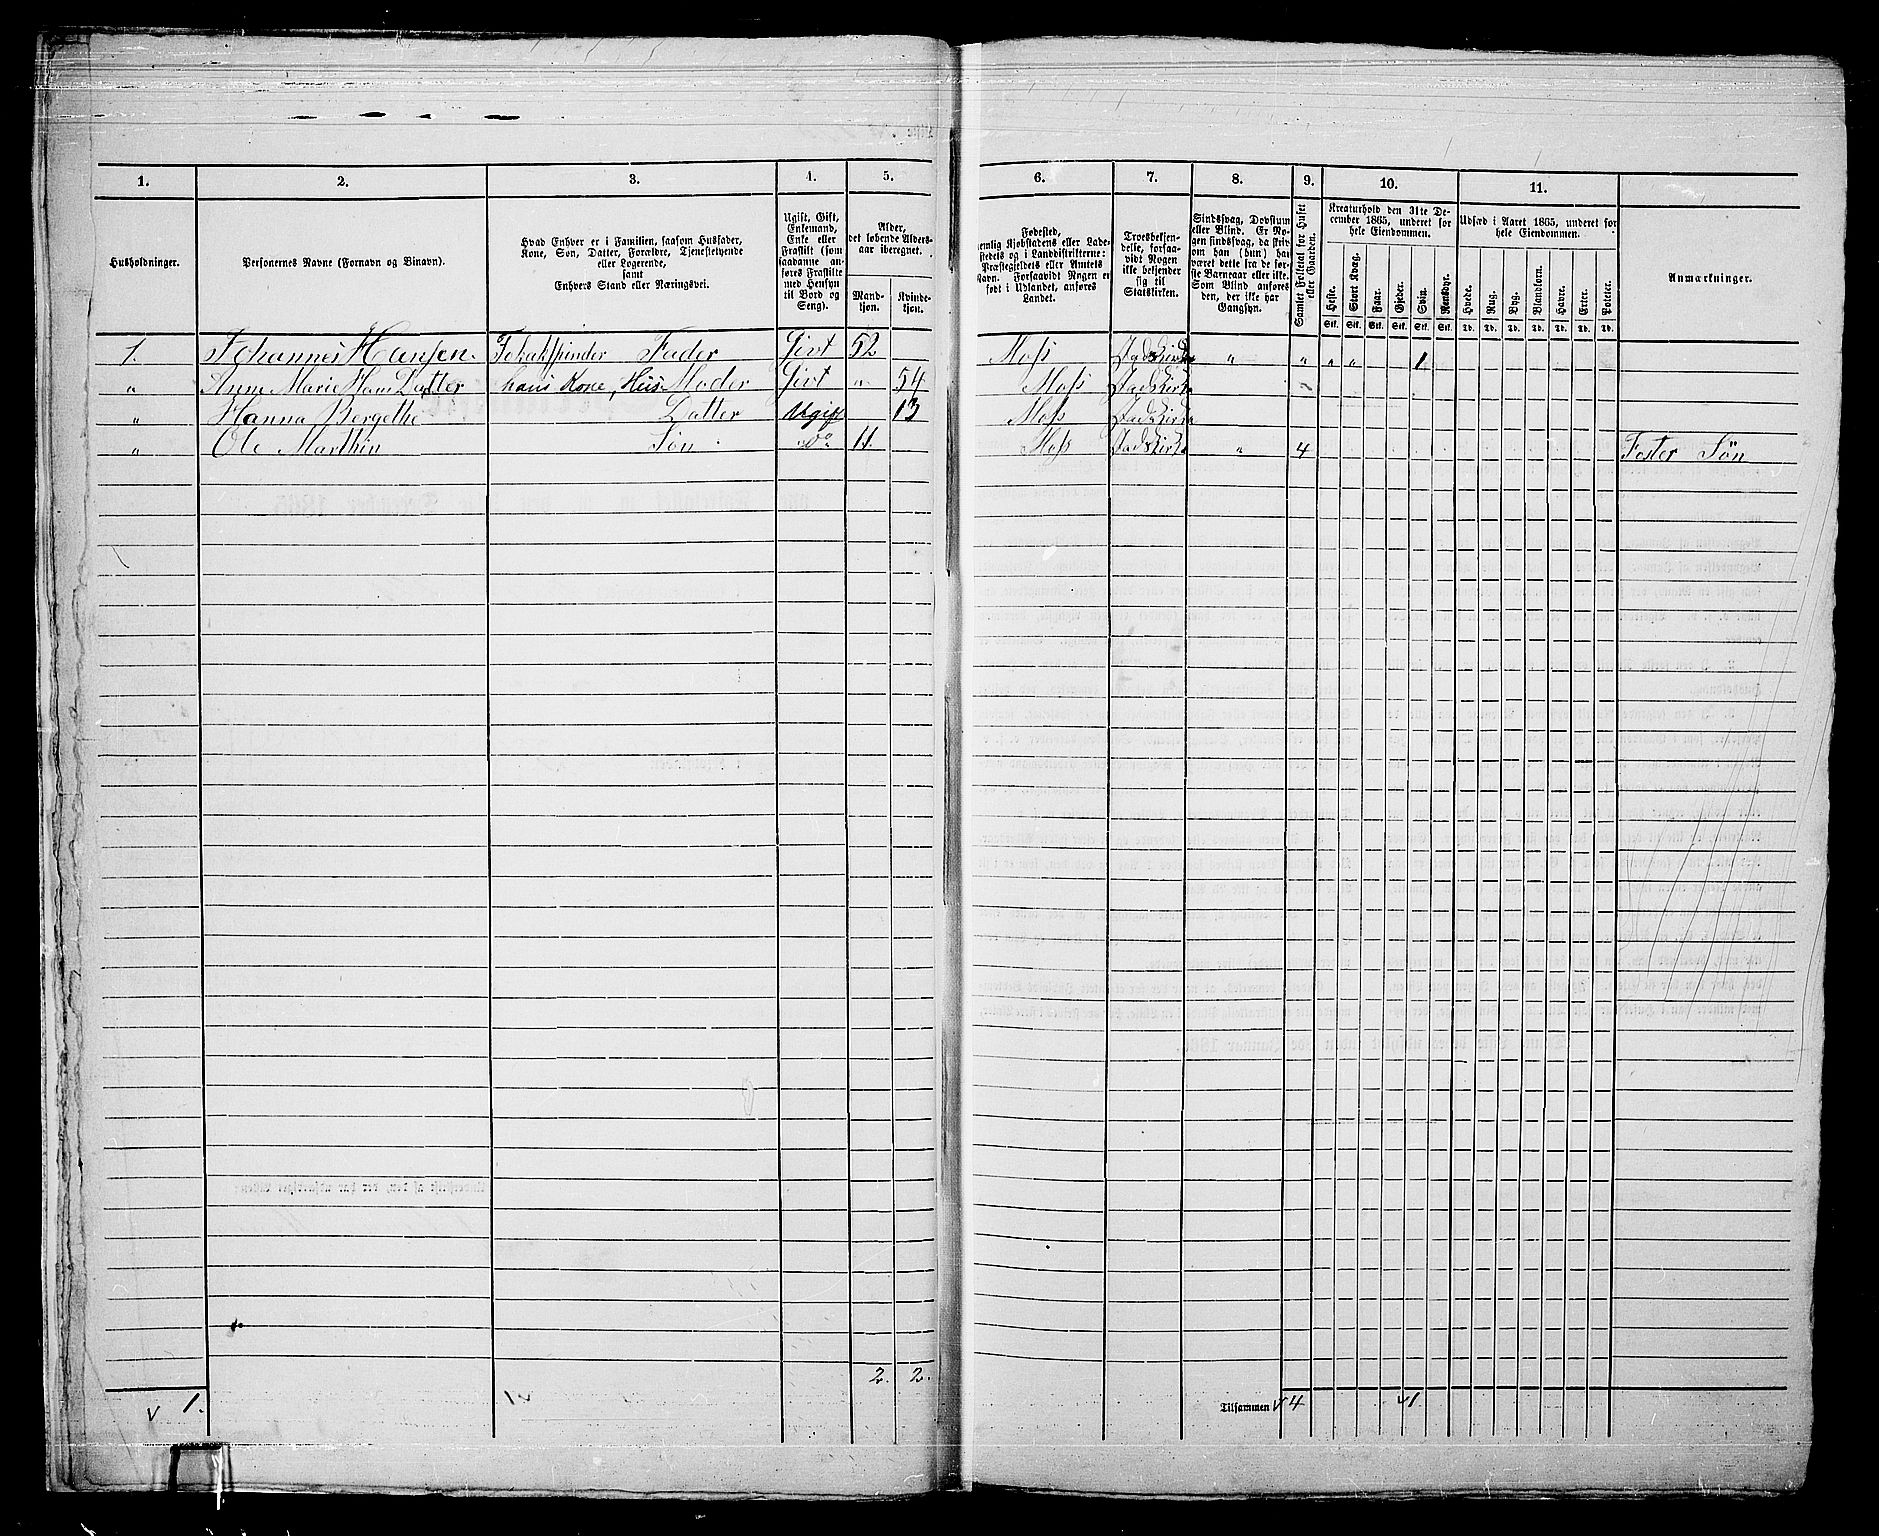 1. 2. 3. 4. 5. 6. 7. 8. 9. 10. 11.
Husholdninger.
Personernes Navne (Fornavn og Binavn).
Hvad Enhver er i Familien, saasom Husfader,
Kone, Søn, Datter, Forældre, Tjenestetyende
eller Logerende,
samt
Enhvers Stand eller Næringsvei.
Ugift, Gift,
Enkemand,
Enke eller
Fraskilt (som
saadanne an-
føres Fraskilte
med Hensyn
til Bord og
Seng).
Alder,
det løbende Alders-
aar iberegnet.
Mand-
kjøn.
Kvinde-
kjøn.
Fødested,
nemlig Kjøbstadens eller Lade-
stedets og i Landdistrikterne:
Præstegjeldets eller Amtets
Navn. Forsaavidt Nogen er
født i Udlandet, anføres
Landet.
Troesbekjen-
delse, forsaa-
vidt Nogen
ikke bekjender
sig til
Statskirken.
Sindssvag, Døvstum
eller Blind. Er No-
gen sindssvag, da skriv
om han (hun) har
været dette fra de før-
ste Barneaar eller ikke.
Som Blind anføres
den, der ikke har
Gangsyn.
Samlet Folketal for Huset
eller Gaarden.
Kreaturhold den 31te De-
cember 1865, underet for
hele Eiendommen.
Heste. Stort Kvæg. Faar. Gjeder. Svin. Rensdyr.
Stk. Stk. Stk. Stk. Stk. Stk.
Udsæd i Aaret 1865, underet for
hele Eiendommen.
Hvede. Rug. Byg. Blandkorn. Havre. Erter. Poteter.
Td. Td. Td. Td. Td. Td. Td.
Anmærkninger.
1. Johannes Hansen Tobakspinder Fader Givt 52 Moss Stadskirke " " " " 1
" Anne Marie Hans Datter hans Kone, Hus Moder Givt " 54 Moss Stadskirke
" Hanna Bergethe Datter Ugift 13 Moss Stadskirke
" Ole Marthin Søn Do 11. Moss Stadskirke " 4 Foster Søn
2. 2.
v 1. v Tilsammen v 4 v1